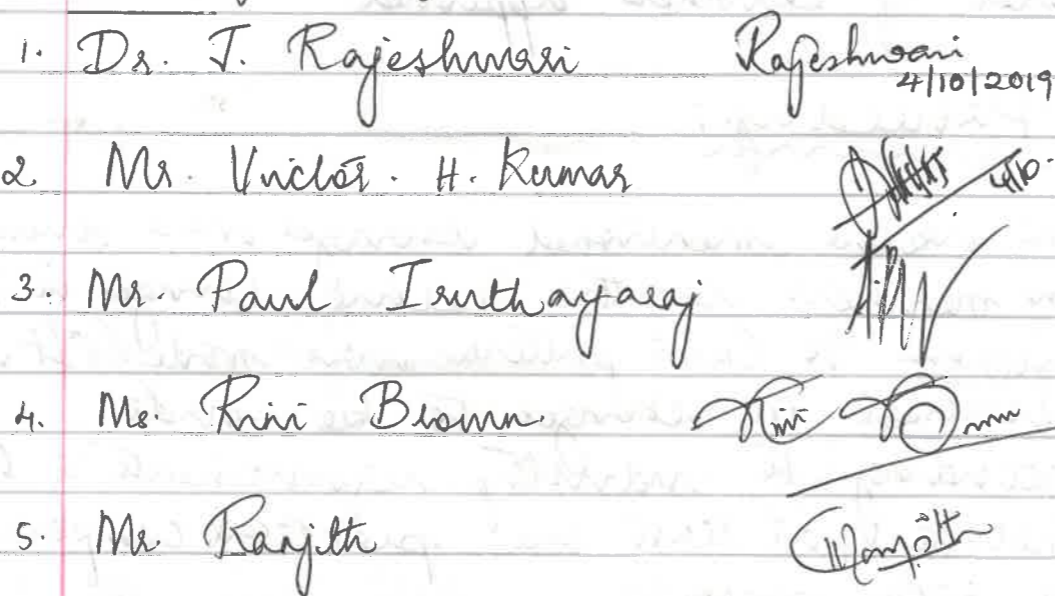 1. Dr. J. Rajeshwari Rajeshwari
4/10/2019
2 Mr. Victor. H. Kumar 4/10
3. Mr. Paul Iruthayaraj
4. Ms. Rini Brown Rini Brown
5. Mr. Ranjith Ranjith